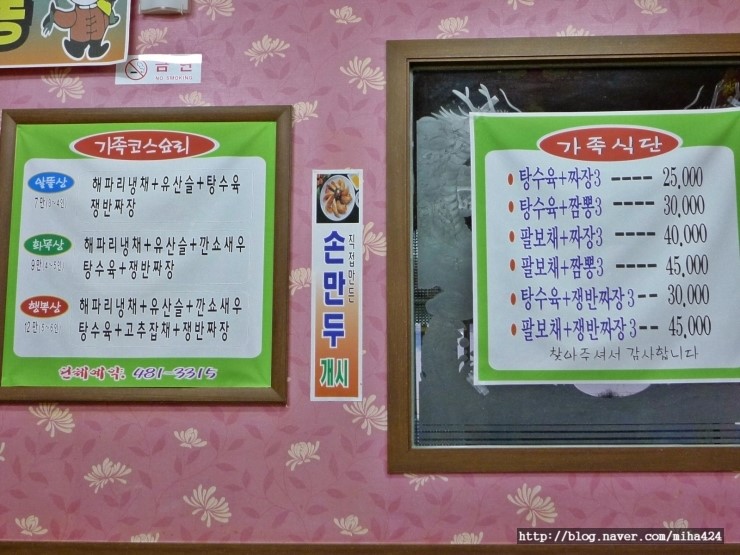 금연
NO SMOKING
가족코스요리
알뜰상
7만(3~4인)
해파리냉채+유산슬+탕수육
쟁반짜장
화목상
9만(4~5인)
해파리냉채+유산슬+깐쇼새우
탕수육+쟁반짜장
행복상
12만(5~6인)
해파리냉채+유산슬+깐쇼새우
탕수육+고추잡채+쟁반짜장
단체예약. 481-3315
직접만든
손만두
개시
가족식단
탕수육+짜장3 ---- 25,000
탕수육+짬뽕3 ---- 30,000
팔보채+짜장3 ---- 40,000
팔보채+짬뽕3 ---- 45,000
탕수육+쟁반짜장3 -- 30,000
팔보채+쟁반짜장3 -- 45,000
찾아주셔서 감사합니다
http://blog.naver.com/miha424